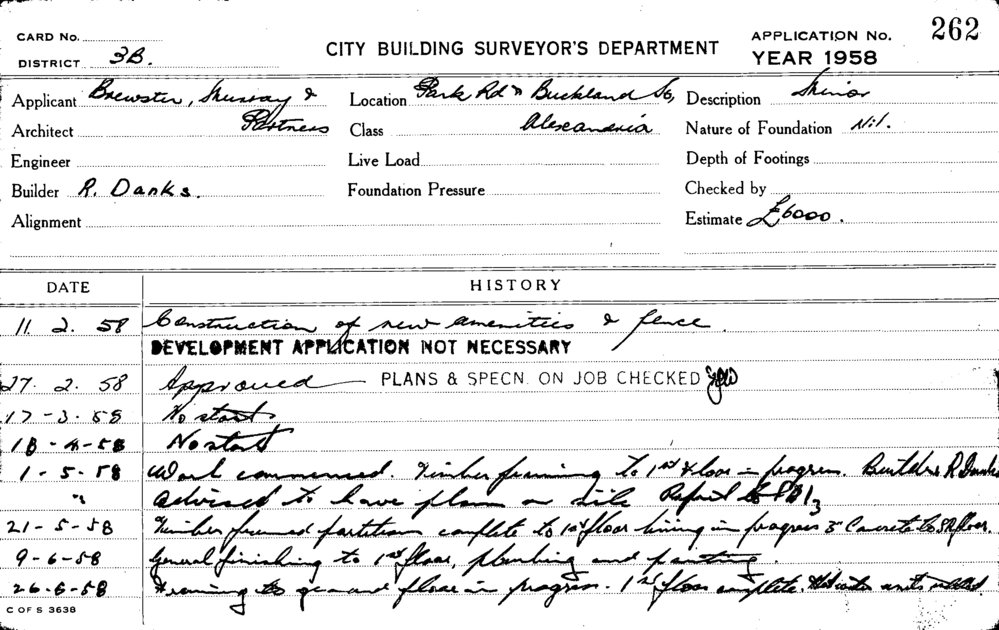 CARD No. APPLICATION No. 262
DISTRICT 3B. CITY BUILDING SURVEYOR'S DEPARTMENT YEAR 1958
Applicant Brewster, Murray & Location Park Rd & Buckland St, Description Minor
Architect Partners Class Alexandria Nature of Foundation Nil.
Engineer Live Load Depth of Footings
Builder R. Danks. Foundation Pressure Checked by
Alignment Estimate £6000.
DATE HISTORY
11. 2. 58 Construction of new amenities & fence.
DEVELOPMENT APPLICATION NOT NECESSARY
27. 2. 58 Approved PLANS & SPECN. ON JOB CHECKED
17-3-58 No start
18-4-58 No start
1-5-58 Work commenced. Timber framing to 1st floor in progress. Builders R. Danks
" advised to have plan on
21-5-58 Timber framed partitions complete to 1st floor lining in progress & Concrete to floor.
9-6-58 General finishing to 1st floor, plumbing and painting.
26-6-58 Framing to ground floor in progress. 1st floor complete. Hot water units
C OF S 3638